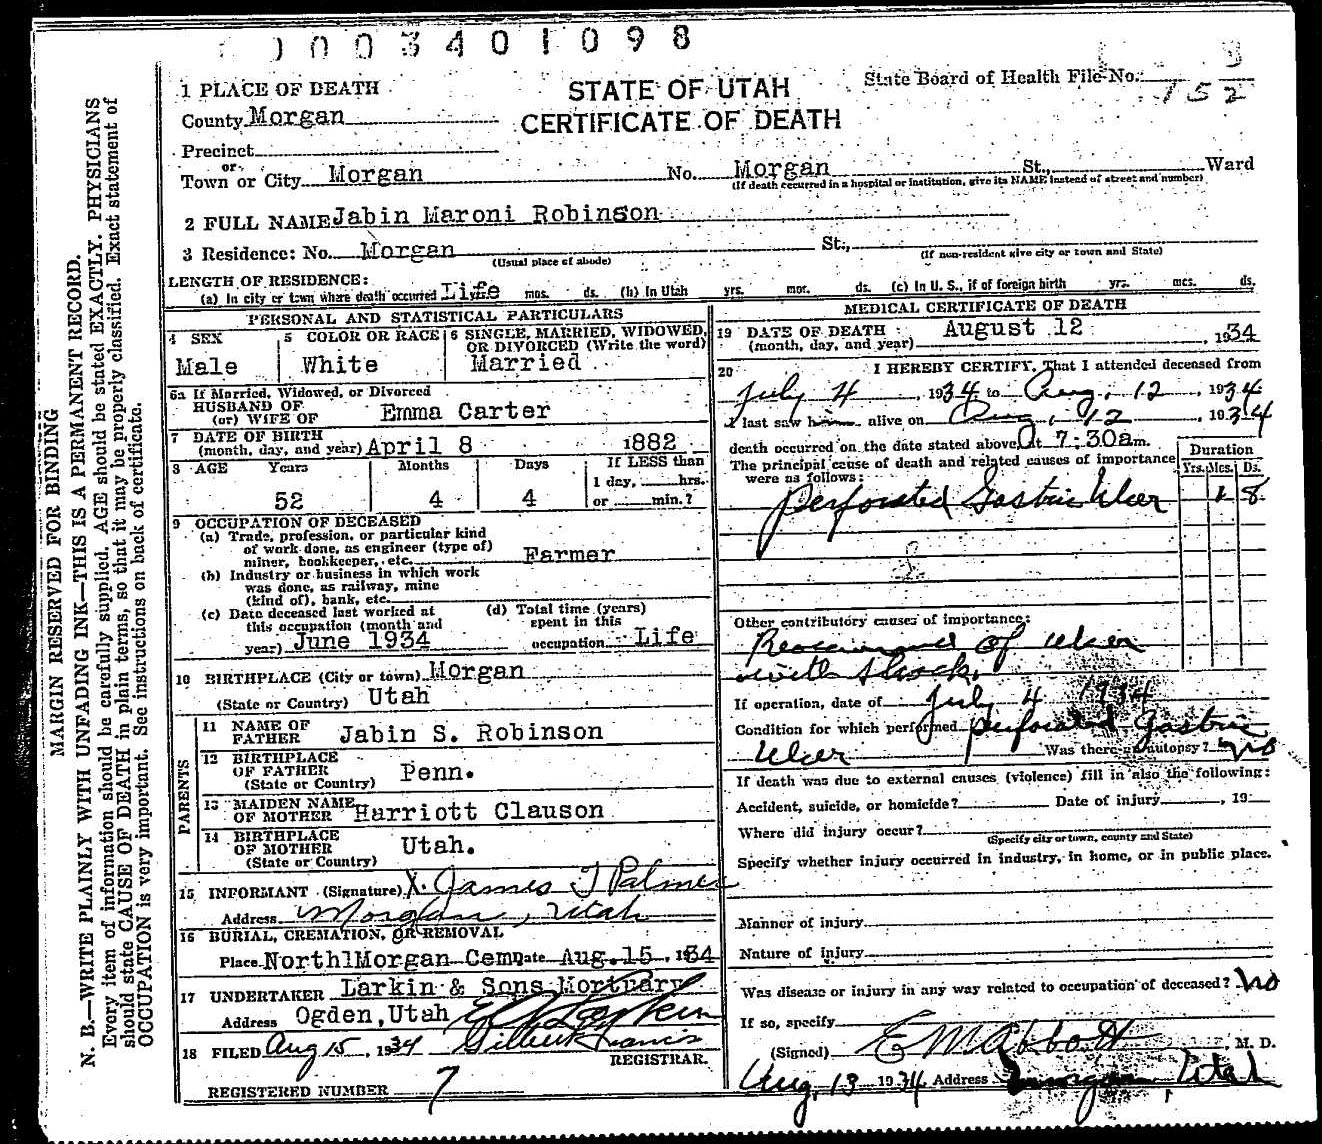 0003401098
STATE OF UTAH
CERTIFICATE OF DEATH
State Board of Health File No. 152
1 PLACE OF DEATH
County Morgan
Precinct
or
Town or City Morgan No. Morgan St., Ward
(If death occurred in a hospital or institution, give its NAME instead of street and number)
2 FULL NAME Jabin Maroni Robinson
3 Residence: No. Morgan St.,
(Usual place of abode) (If non-resident give city or town and State)
LENGTH OF RESIDENCE:
(a) In city or town where death occurred Life yrs. mos. ds. (b) In Utah yrs. mor. ds. (c) In U. S., if of foreign birth yrs. mcs. ds.
PERSONAL AND STATISTICAL PARTICULARS
4 SEX
Male
5 COLOR OR RACE
White
6 SINGLE, MARRIED, WIDOWED, OR DIVORCED (Write the word)
Married
6a If Married, Widowed, or Divorced
HUSBAND OF
(or) WIFE OF Emma Carter
7 DATE OF BIRTH
(month, day, and year) April 8 1882
8 AGE Years Months Days If LESS than
1 day, hrs.
52 4 4 or min.?
9 OCCUPATION OF DECEASED
(a) Trade, profession, or particular kind
of work done, as engineer (type of)
miner, bookkeeper, etc. Farmer
(b) Industry or business in which work
was done, as railway, mine
(kind of), bank, etc.
(c) Date deceased last worked at
this occupation (month and
year) June 1934
(d) Total time (years)
spent in this
occupation Life
10 BIRTHPLACE (City or town) Morgan
(State or Country) Utah
PARENTS
11 NAME OF
FATHER Jabin S. Robinson
12 BIRTHPLACE
OF FATHER Penn.
(State or Country)
13 MAIDEN NAME
OF MOTHER Harriott Clauson
14 BIRTHPLACE
OF MOTHER Utah.
(State or Country)
15 INFORMANT (Signature) X. James T Palmer
Address Morgan, Utah
16 BURIAL, CREMATION, OR REMOVAL
Place North Morgan Cem Date Aug. 15, 1934
17 UNDERTAKER Larkin & Sons Mortuary
Address Ogden, Utah
18 FILED Aug 15, 1934 Gilbert Francis
REGISTRAR.
REGISTERED NUMBER 7
MEDICAL CERTIFICATE OF DEATH
19 DATE OF DEATH August 12, 1934
(month, day, and year)
20 I HEREBY CERTIFY, That I attended deceased from
July 4, 1934 to Aug, 12, 1934
I last saw him alive on Aug, 12, 1934
death occurred on the date stated above, at 7:30am.
The principal cause of death and related causes of importance
were as follows:
Duration
Yrs. Mcs. Ds.
Perforated Gastric Ulcer 1 8
Other contributory causes of importance:
of Ulcer
with Shock.
If operation, date of July 4 1934
Condition for which performed Perforated Gastric
Ulcer Was there an autopsy? no
If death was due to external causes (violence) fill in also the following:
Accident, suicide, or homicide? Date of injury , 19
Where did injury occur?
(Specify city or town, county and State)
Specify whether injury occurred in industry, in home, or in public place.
Manner of injury
Nature of injury
Was disease or injury in any way related to occupation of deceased? No
If so, specify
(Signed) E M Abbott, M. D.
Aug, 13 1934 Address Morgan, Utah
MARGIN RESERVED FOR BINDING
N. B.—WRITE PLAINLY WITH UNFADING INK—THIS IS A PERMANENT RECORD.
Every item of information should be carefully supplied. AGE should be stated EXACTLY. PHYSICIANS
should state CAUSE OF DEATH in plain terms, so that it may be properly classified. Exact statement of
OCCUPATION is very important. See instructions on back of certificate.